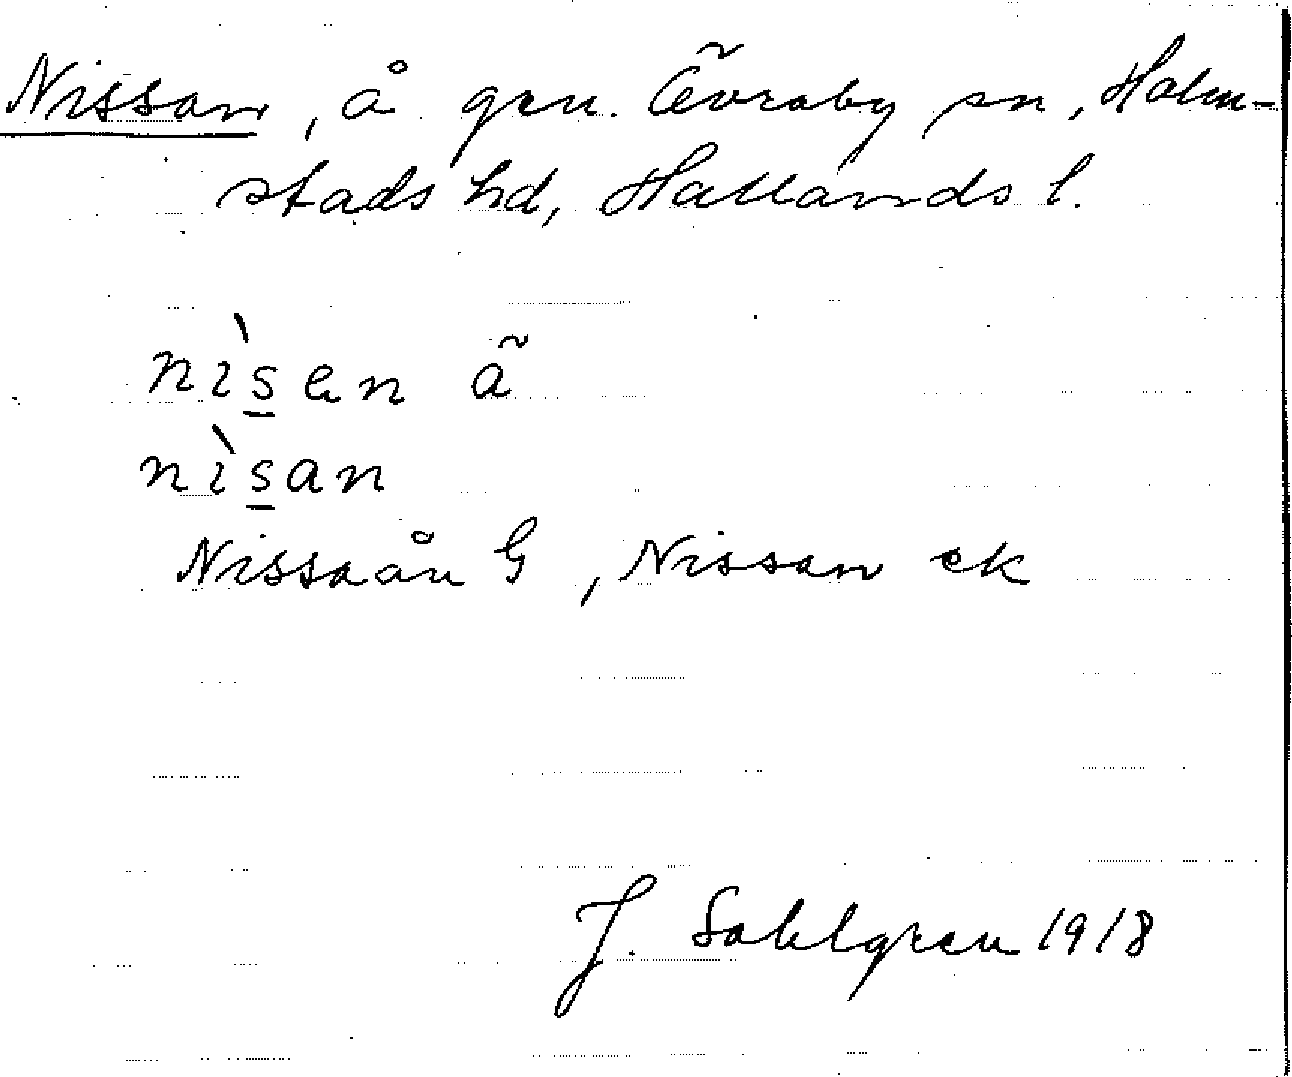 Nissan, å gm. Övraby sn, Halm-
stads hd, Hallands l.
nìsen å
nìsan
Nissaån G, Nissan ek
J. Sahlgren 1918